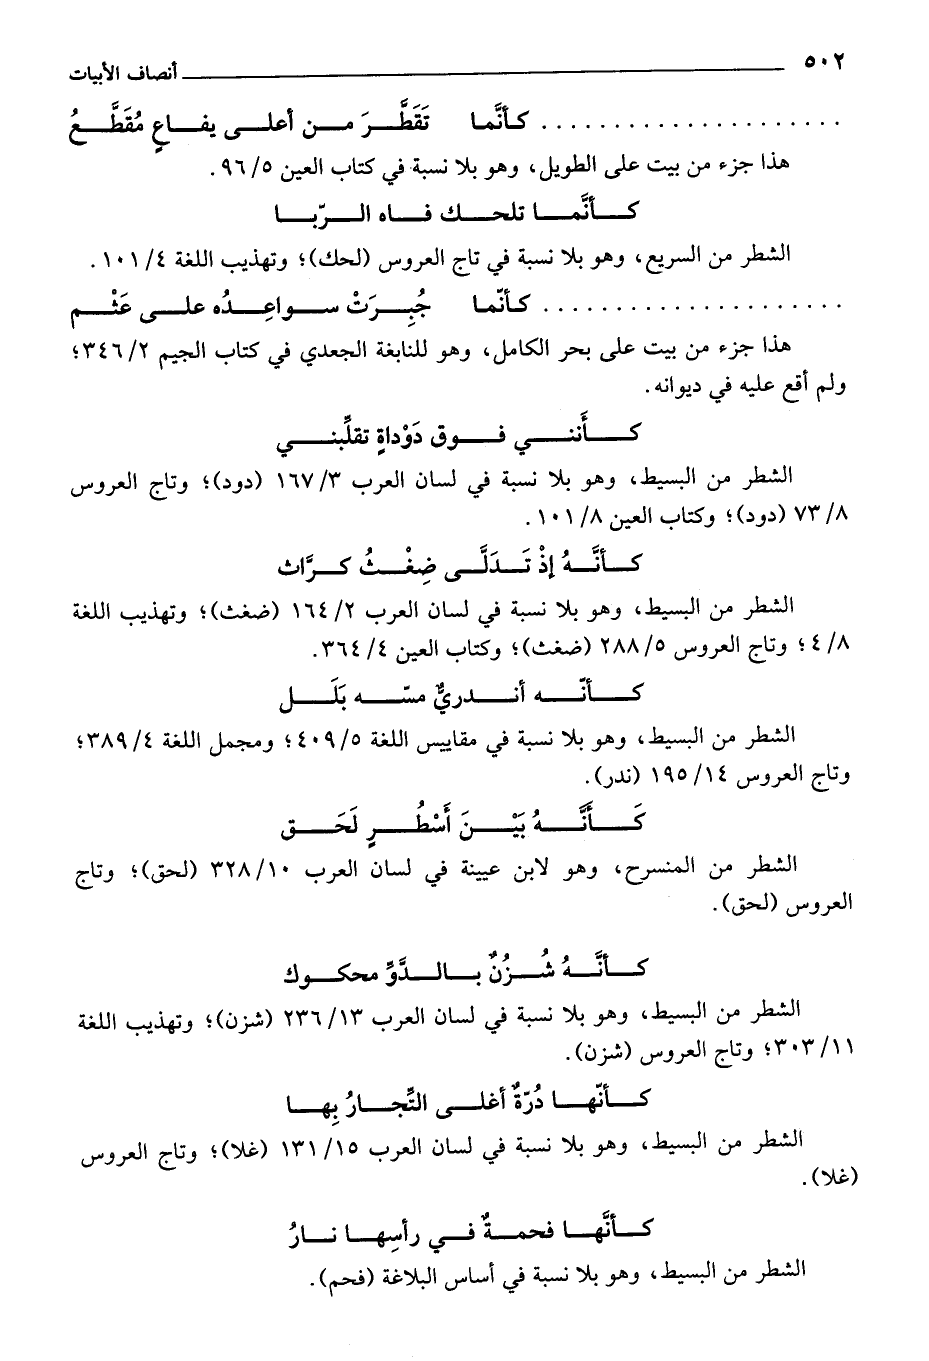 ٥٠٢ أنصاف الأبيات
. . . . . . . . . . . . . . . . . . . . . كأنَّما تَقَطَّرَ من أعلى يفاعٍ مُقَطَّعُ
هذا جزء من بيت على الطويل، وهو بلا نسبة في كتاب العين ٥/ ٩٦.
كأنَّما تلحك فاه الرّبا
الشطر من السريع، وهو بلا نسبة في تاج العروس (لحك)؛ وتهذيب اللغة ٤/ ١٠١.
. . . . . . . . . . . . . . . . . . . . . كأنّما جُبِرَتْ سواعِدُه على عَثْم
هذا جزء من بيت على بحر الكامل، وهو للنابغة الجعدي في كتاب الجيم ٢/ ٣٤٦؛
ولم أقع عليه في ديوانه.
كأَنني فوق دَوْداةٍ تقلِّبني
الشطر من البسيط، وهو بلا نسبة في لسان العرب ٣/ ١٦٧ (دود)؛ وتاج العروس
٨/ ٧٣ (دود)؛ وكتاب العين ٨/ ١٠١.
كأنَّهُ إذْ تَدَلَّى ضِغْثُ كرَّاث
الشطر من البسيط، وهو بلا نسبة في لسان العرب ٢/ ١٦٤ (ضغث)؛ وتهذيب اللغة
٨/ ٤؛ وتاج العروس ٥/ ٢٨٨ (ضغث)؛ وكتاب العين ٤/ ٣٦٤.
كأنّه أندريٌّ مسّه بَلَل
الشطر من البسيط، وهو بلا نسبة في مقاييس اللغة ٥/ ٤٠٩؛ ومجمل اللغة ٤/ ٣٨٩؛
وتاج العروس ١٤/ ١٩٥ (ندر).
كَأنَّهُ بَيْنَ أَسْطُرٍ لَحَق
الشطر من المنسرح، وهو لابن عيينة في لسان العرب ١٠/ ٣٢٨ (لحق)؛ وتاج
العروس (لحق).
كأنَّهُ شُزُنٌ بالدَّوِّ محكوك
الشطر من البسيط، وهو بلا نسبة في لسان العرب ١٣/ ٢٣٦ (شزن)؛ وتهذيب اللغة
١١/ ٣٠٣؛ وتاج العروس (شزن).
كأنّها دُرّةٌ أغلى التِّجارُ بِها
الشطر من البسيط، وهو بلا نسبة في لسان العرب ١٥/ ١٣١ (غلا)؛ وتاج العروس
(غلا).
كأنَّها فحمةٌ في رأسِها نارُ
الشطر من البسيط، وهو بلا نسبة في أساس البلاغة (فحم).